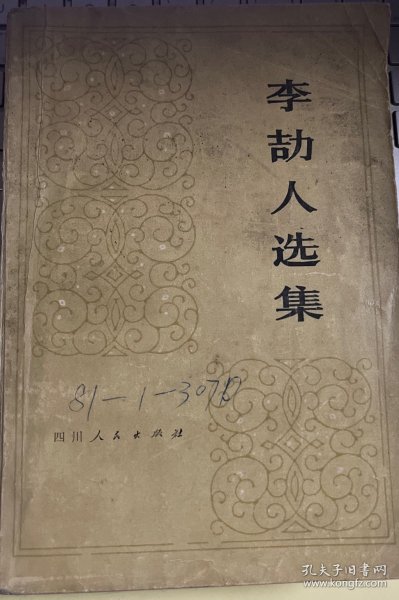 李劼人选集
81-1-307
四川人民出版社
孔夫子旧书网
www.kongfz.com